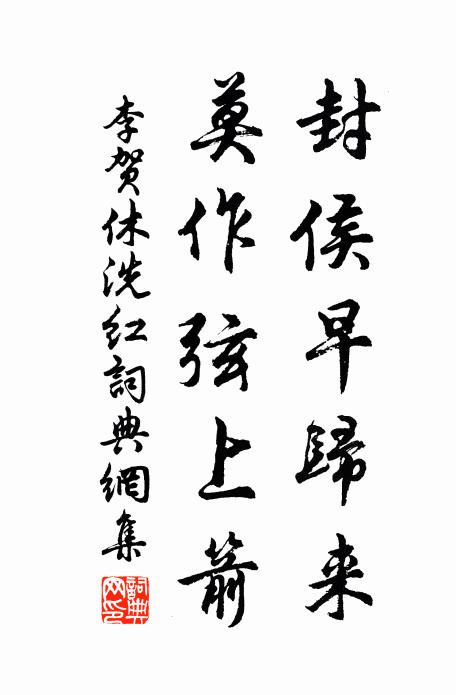 封侯早歸来
莫作弦上箭
李贺休洗红詞典網集
詞典
网印